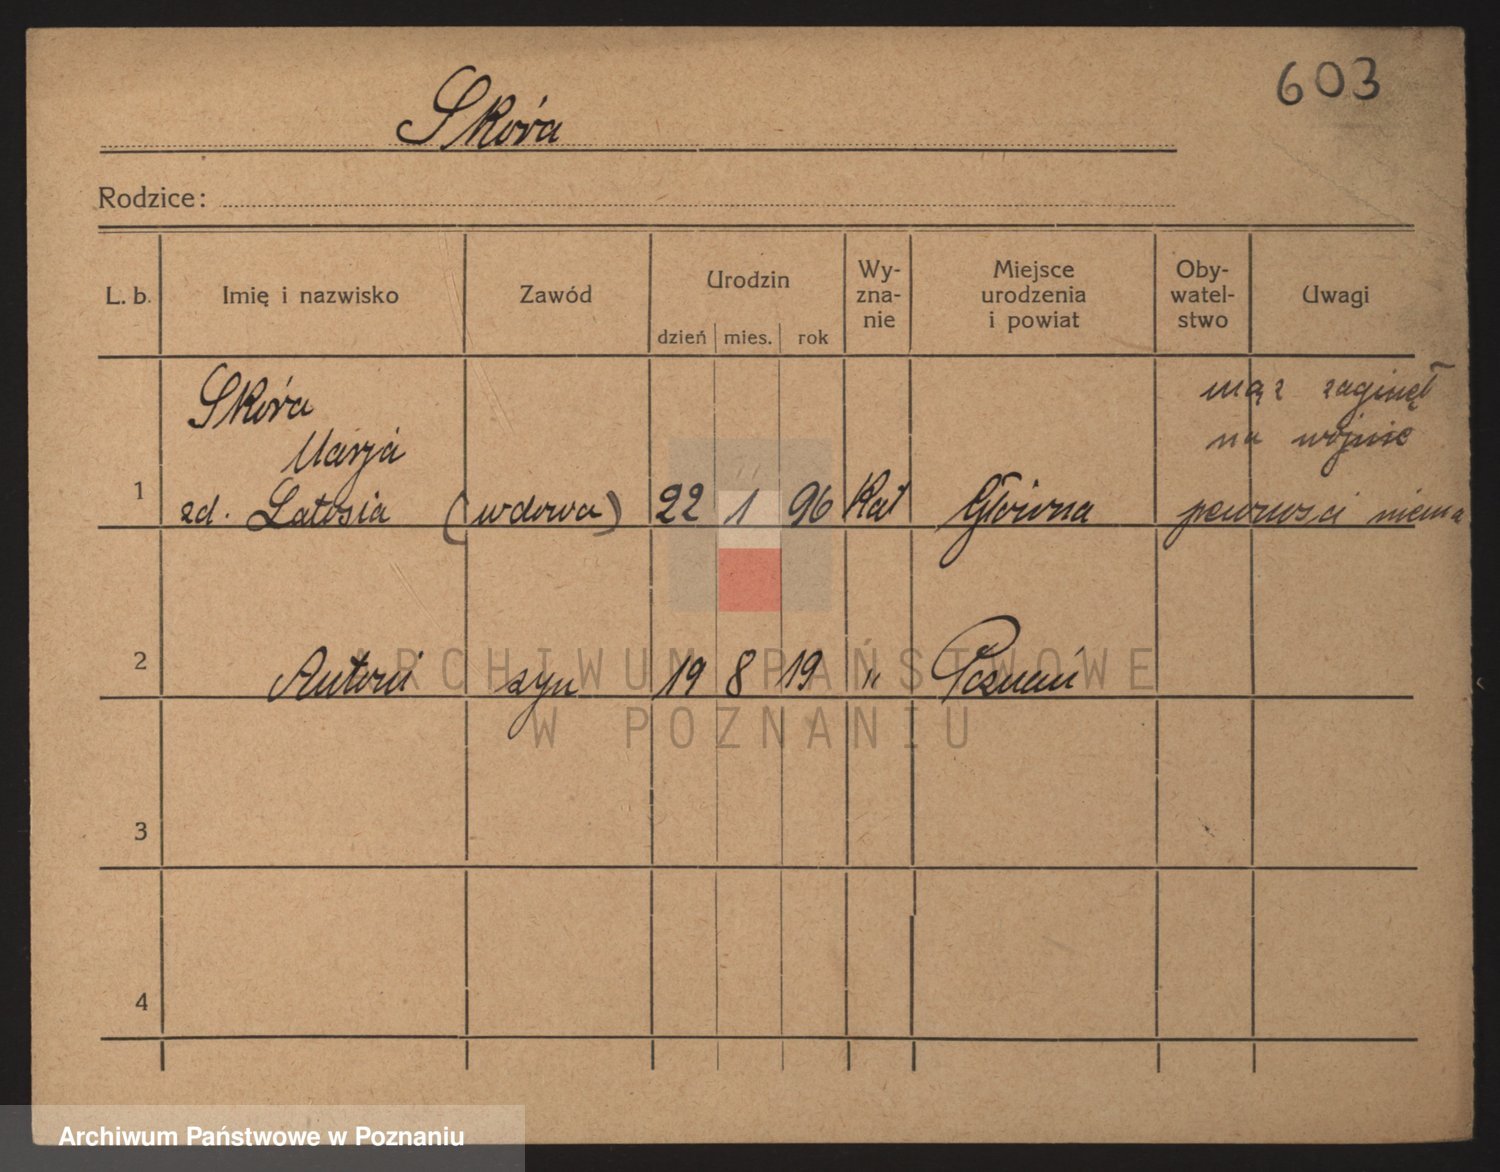 603
Skóra
Rodzice:
L. b. Imię i nazwisko Zawód Urodzin dzień mies. rok Wy-zna-nie Miejsce urodzenia i powiat Oby-watel-stwo Uwagi
Skóra mąż zaginął
Marja na wojnie
1 zd. Latosia (wdowa) 22 1 96 Kat Główna pewności niema
2 Antoni syn 19 8 19 " Poznań
ARCHIWUM PAŃSTWOWE
W POZNANIU
3
4
Archiwum Państwowe w Poznaniu